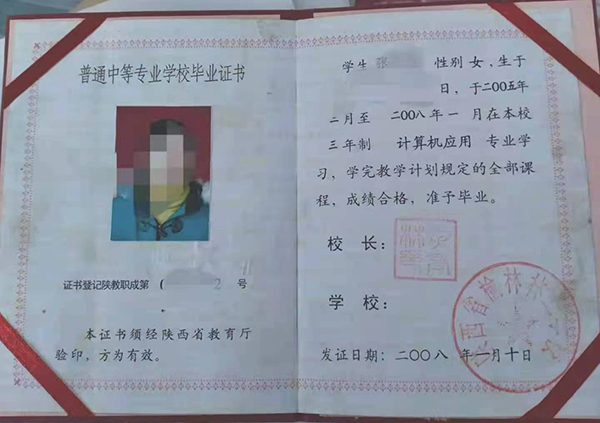 普通中等专业学校毕业证书
证书登记陕教职成第( 2 号
本证书须经陕西省教育厅
验印，方为有效。
学生 张 性别 女，生于
日，于二00五年
二月至 二00八年一 月在本校
三年制 计算机应用 专业学
习，学完教学计划规定的全部课
程，成绩合格，准予毕业。
校 长：
学 校：
发证日期：二00八 年一月十日
西省榆林